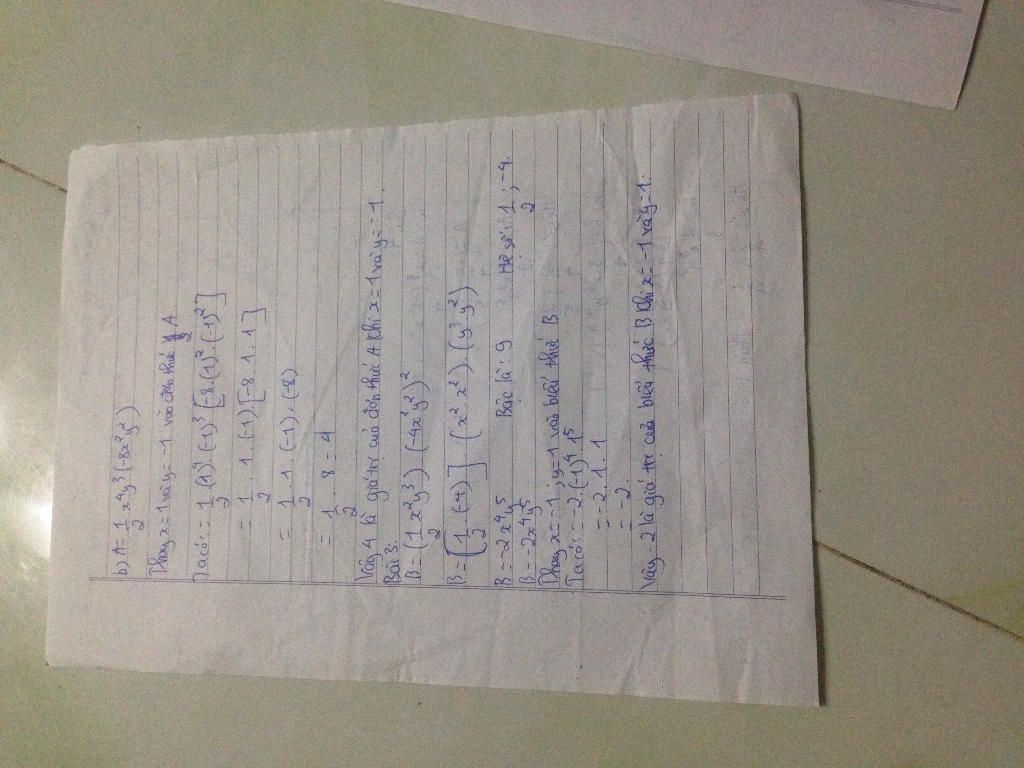 b) A = 1/2 x⁴y³ (-8x²y²)
Thay x = 1 và y = -1 vào đơn thức A
Ta có: 1/2 (1)⁴ . (-1)³ [-8.(1)² (-1)²]
= 1/2 . 1 . (-1) . [-8 . 1 . 1]
= 1/2 . 1 (-1) . (-8)
= 1/2 . 8 = 4
Vậy 4 là giá trị của đơn thức A khi x = 1 và y = -1.
Bài 3:
B = (1/2 x²y³) (-4x²y²)²
B = [1/2 . (-4)] . (x² x²) . (y³ y²)
B = -2x⁴y⁵ Bậc là: 9 Hệ số: 1/2 ; -4.
B = -2x⁴y⁵
Thay x = -1 ; y = 1 vào biểu thức B
Ta có: = -2.(-1)⁴ 1⁵
= -2 . 1 . 1
= -2.
Vậy -2 là giá trị của biểu thức B khi x = -1 và y = 1.